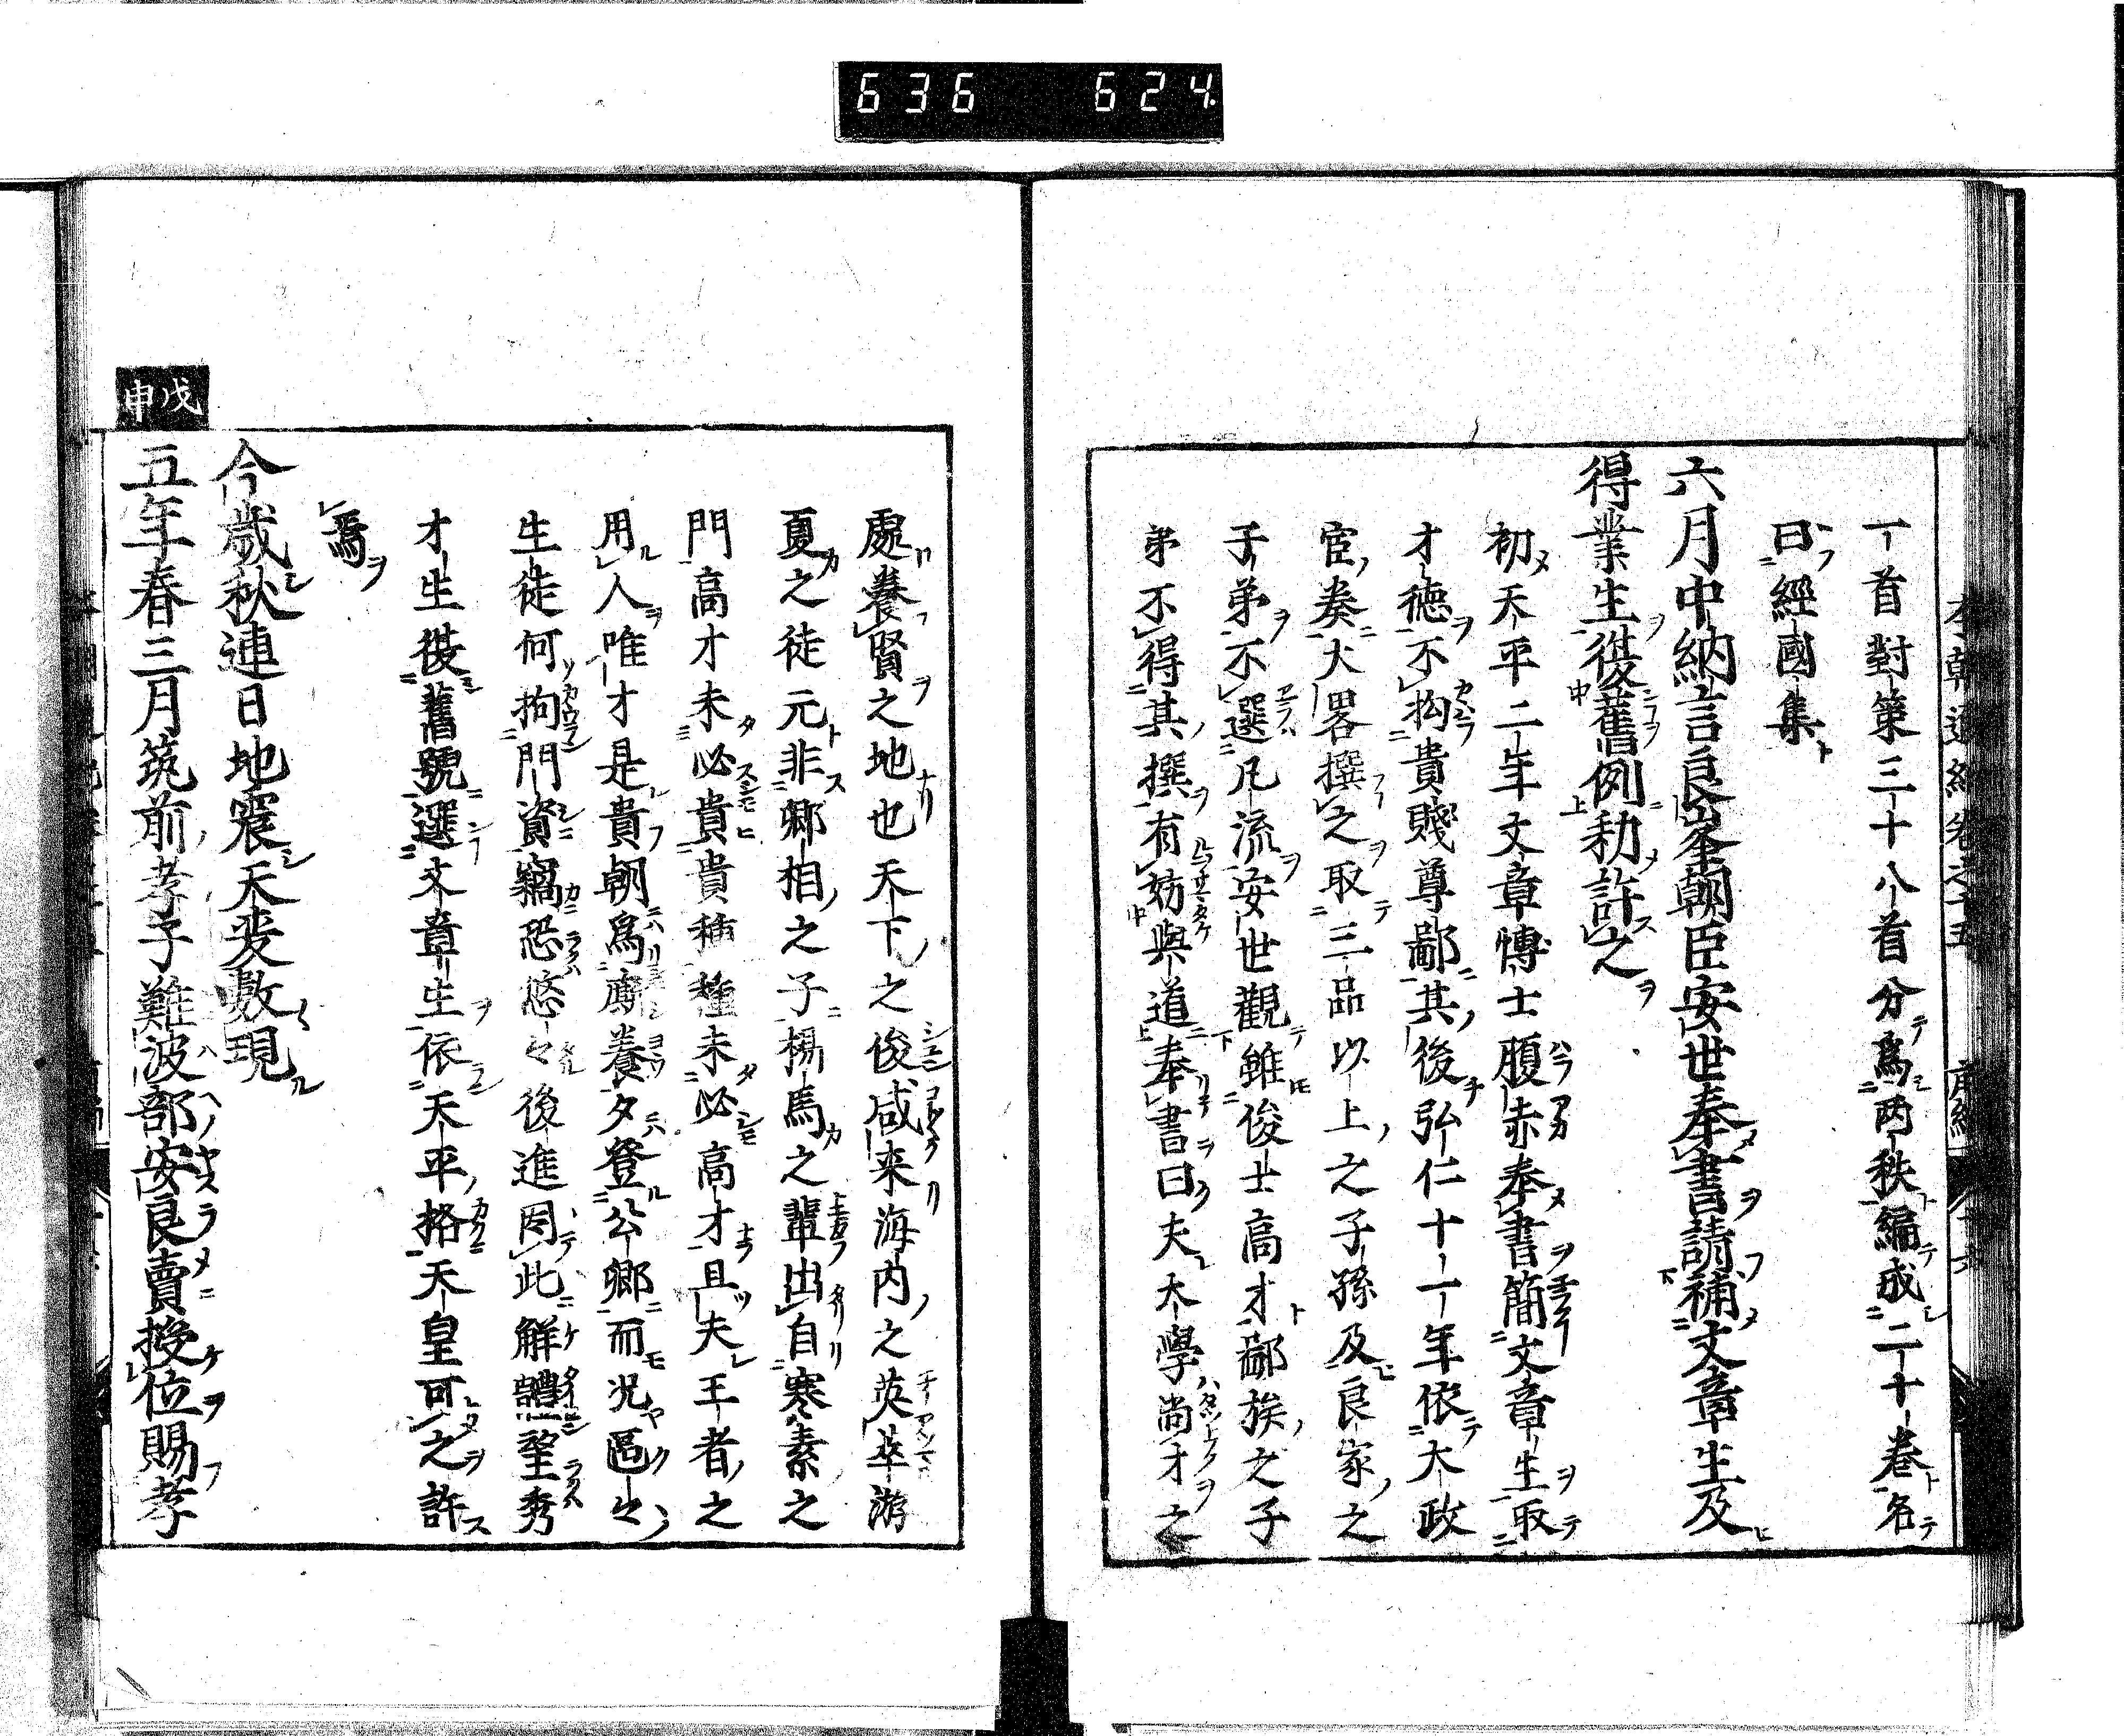 636 624
一首對策三十八首分爲两秩編成二十卷名
曰經國集
六月中納言良峯朝臣安世奉書請補文章生及
得業生復舊例勅許之
初天平二年文章博士腹赤奉書簡文章生取
才德不拘貴賤尊鄙其後弘仁十一年依大政
官奏大畧撰之取三品以上之子孫及良家之
子弟不選凡流安世觀雖俊士高才鄙族之子
弟不得其撰有妨與道奉書曰夫大學尚才之
處養賢之地也天下之俊咸来海内之英萃游
夏之徒元非卿相之子楊馬之輩出自寒素之
門高才未必貴種貴種未必高才且夫王者之
用人唯才是貴朝爲廝養夕登公卿而况區々
生徒何拘門資竊恐悠々後進因此解體望秀
才生復舊號選文章生依天平格天皇可之許
焉
今歳秋連日地震天変数現
戊申
五年春三月筑前孝子難波部安良賣授位賜孝